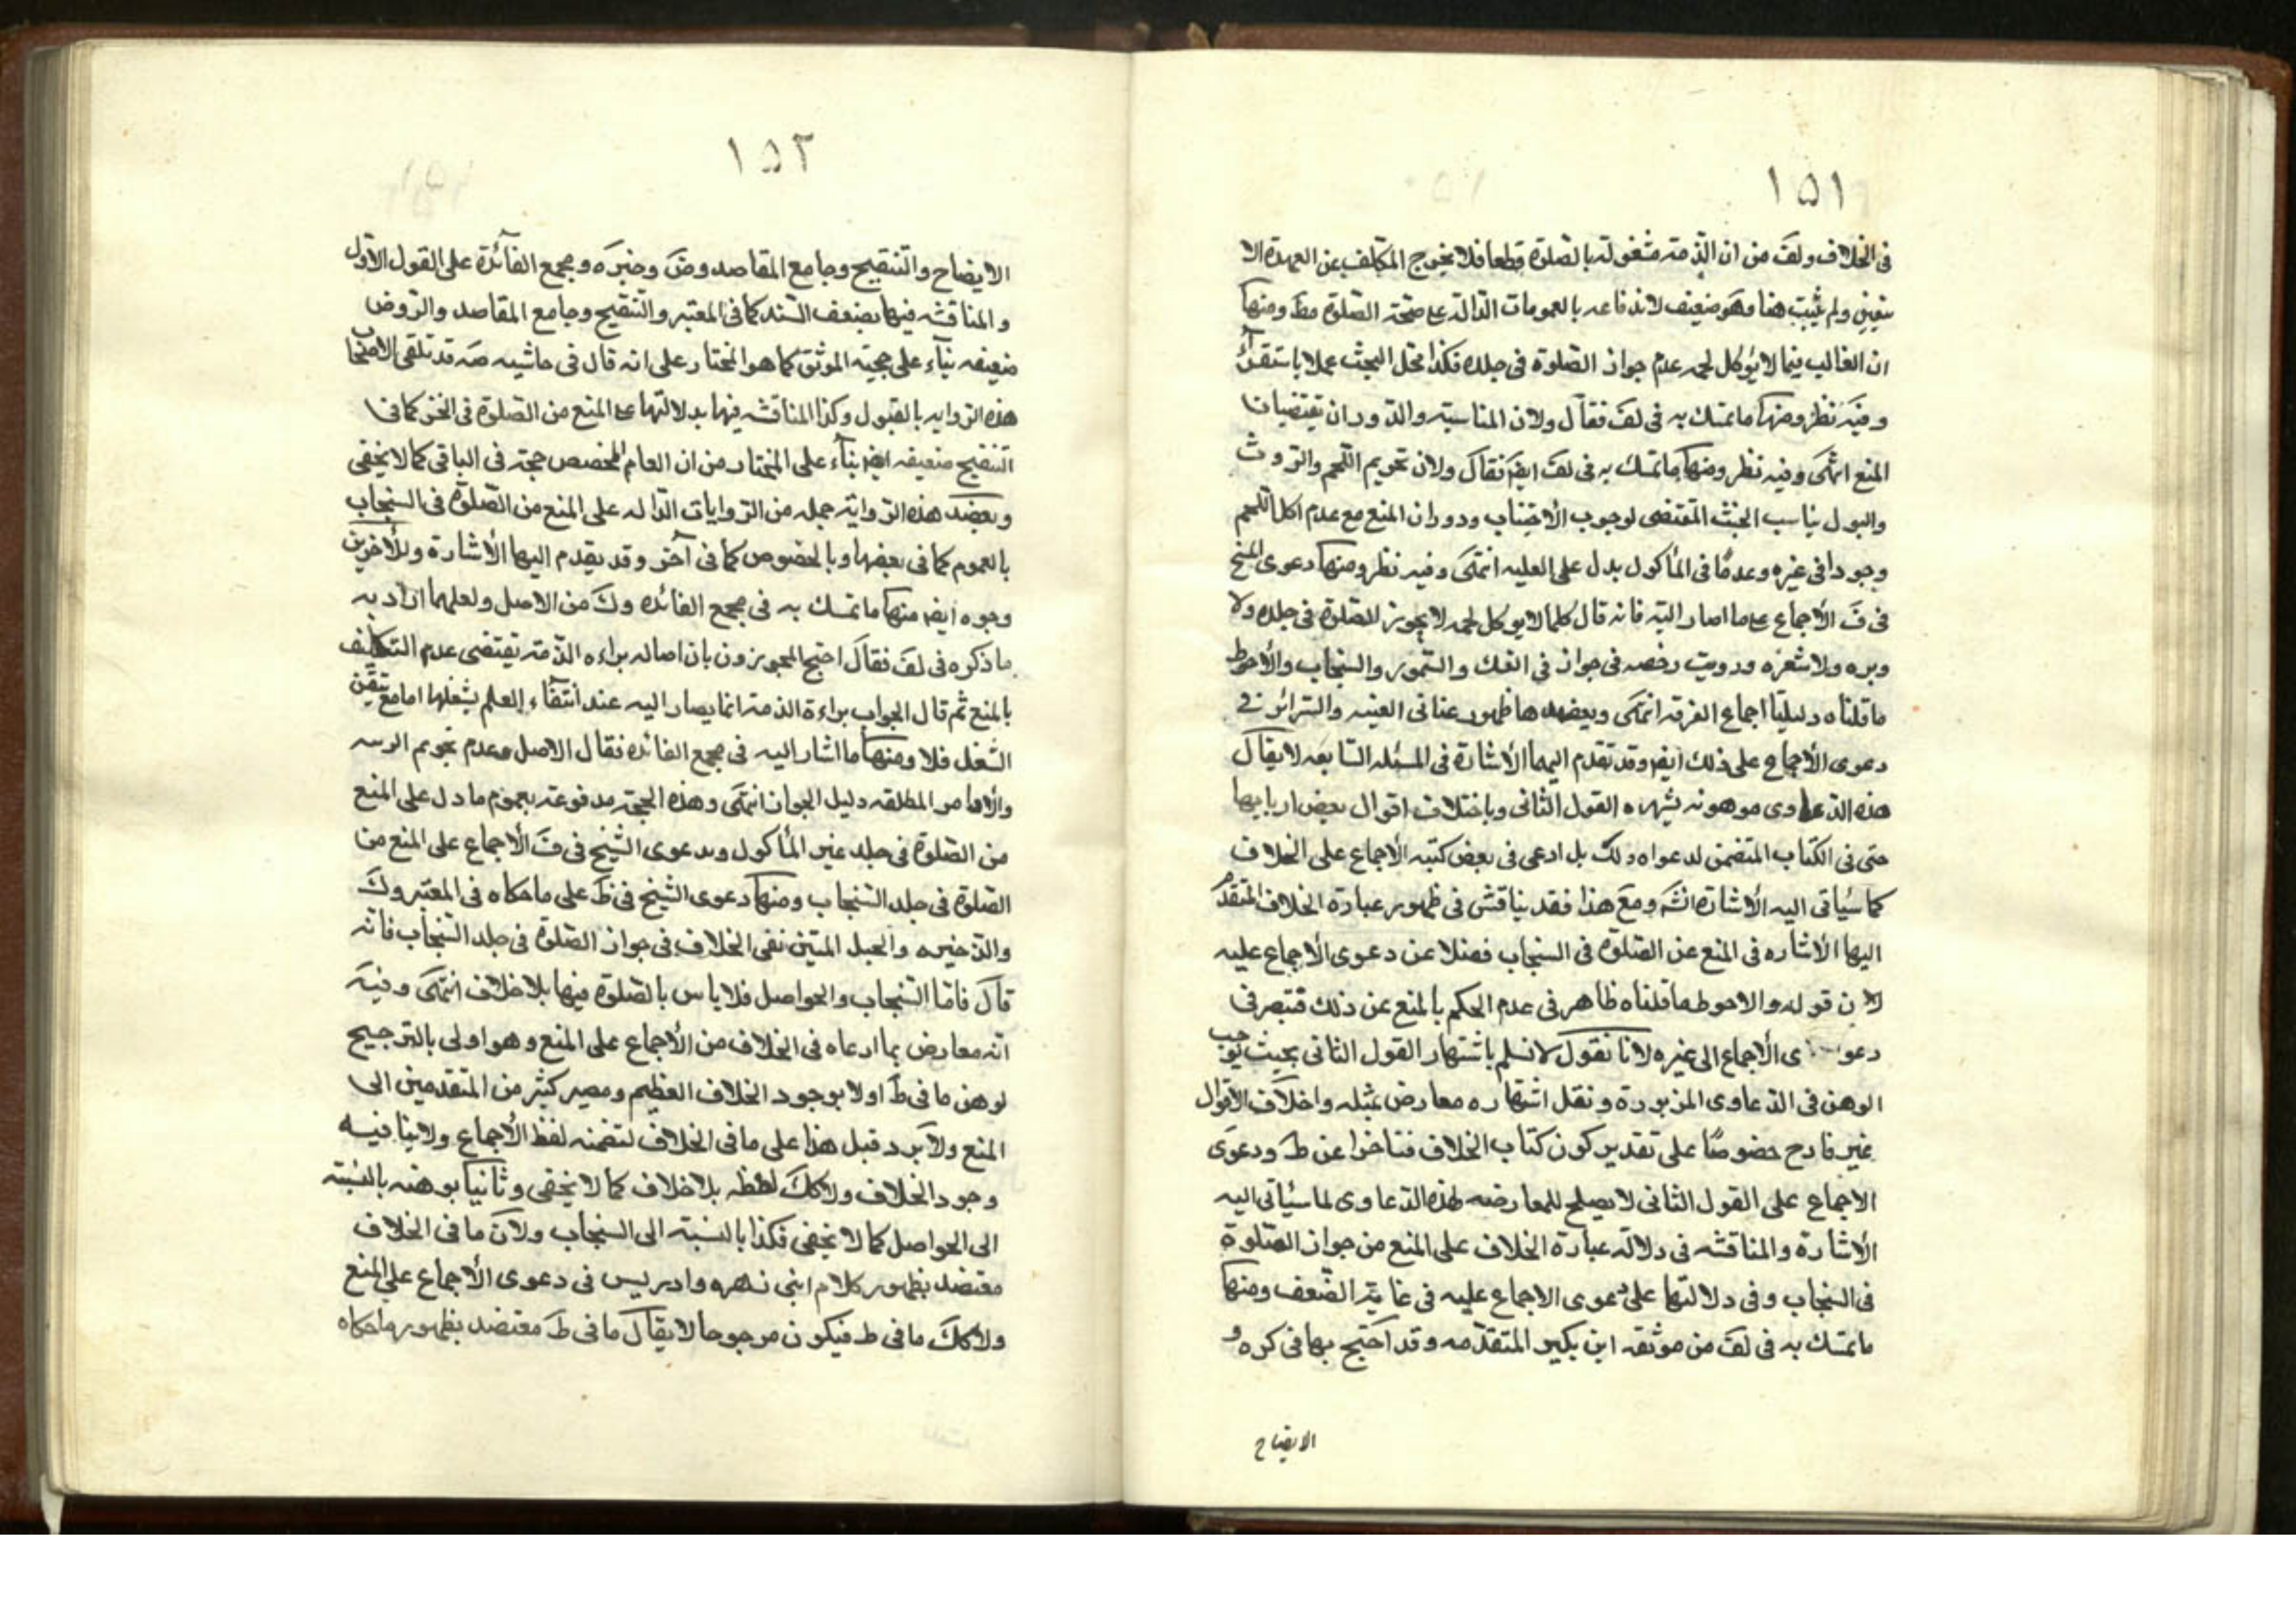 ١٥١
فى الخلاف ولف من ان الذمة مشغولة بالصلوة قطعا فلا يخرج المكلف عن العهدة الا
بتعين ولم يثبت هنا وهو ضعيف لاندفاعه بالعمومات الدالة على صحة الصلوة مط ومنها
ان الغالب فيما لا يؤكل لحمه عدم جواز الصلوة فى جلده فكذا محل البحث عملا باستقراء
وفيه نظر ومنها ما تمسك به فى لف فقال ولان المناسبة والدوران يقتضيان
المنع انتهى وفيه نظر ومنها ما تمسك به فى لف ايض فقال ولان تحريم اللحم والروث
والبول يناسب الخبث المقتضى لوجوب الأجتناب ودوران المنع مع عدم اكل اللحم
وجودا فى غيره وعدمًا فى المأكول يدل على العلية انتهى وفيه نظر ومنها دعوى الشيخ
فى ف الأجماع على ما اصار اليه فانه قال كلما لا يوكل لحمه لا يجوز الصلوة فى جلده ولا
وبره ولا شعره ورويت رخصة فى جواز فى الفنك والسمور والسنجاب والأحوط
ما قلناه دليلنا اجماع الفرقة انتهى ويعضدها ظهور عبائر الغنية والسرائر فى
دعوى الأجماع على ذلك ايض وقد تقدم اليهما الأشارة فى المسئلة السابعه لا يقال
هذه الدعاوى موهونه بشهره القول الثانى وباختلاف اقوال بعض اربابها
حتى فى الكتاب المتضمن لدعواه ذلك بل ادعى فى بعض كتبه الأجماع على الخلاف
كما سيأتى اليه الأشارة انشه ومع هذا فقد يناقش فى ظهور عبارة الخلاف المتقدم
اليها الأشاره فى المنع عن الصلوة فى السنجاب فضلا عن دعوى الأجماع عليه
لان قوله والاحوط ما قلناه ظاهر فى عدم الحكم بالمنع عن ذلك فتبصر فى
دعوى الأجماع الى غيره لانا نقول لا نسلم باشتهار القول الثانى بحيث يوجب
الوهن فى الدعاوى المزبورة ونقل اشتهاره معارض بمثله واختلاف الاقوال
غير قادح خصوصًا على تقدير كون كتاب الخلاف متأخرا عن ط ودعوى
الاجماع على القول الثانى لا يصلح للمعارضه لهذه الدعاوى لما سيأتى اليه
الأشارة والمناقشه فى دلالة عبارة الخلاف على المنع من جواز الصلوة
فى السنجاب وفى دلالتها على دعوى الاجماع عليه فى غاية الضعف ومنها
ما تمسك به فى لف من موثقه ابن بكير المتقدمه وقد احتج بها فى كره و
الايضاح
١٥٢
الايضاح والتنقيح وجامع المقاصد وض وخيره ومجمع الفائدة على القول الأول
والمناقشه فيها بضعف السند كما فى المعتبر والتنقيح وجامع المقاصد والروض
ضعيفه بناء على حجية الموثق كما هو المختار على انه قال فى حاشيه صه قد تلقى الاصحاب
هذه الروايه بالقبول وكذا المناقشه فيها بدلالتها على المنع من الصلوة فى الخز كما فى
التنقيح ضعيفه ايض بناء على المختار من ان العام المخصص حجة فى الباقى كما لا يخفى
ويعضد هذه الرواية جمله من الروايات الداله على المنع من الصلوة فى السنجاب
بالعموم كما فى بعضها وبالخصوص كما فى آخر وقد يقدم اليها الأشارة وللأخرين
وجوه ايض منها ما تمسك به فى مجمع الفائده وك من الاصل ولعلهما ارادا به
ما ذكره فى لف فقال احتج المجوزون بان اصاله براءه الذمة يقتضى عدم التكليف
بالمنع ثم قال الجواب براءة الذمة انما يصار اليه عند انتفاء العلم بشغلها اما مع تيقن
الشغل فلا ومنها ما اشار اليه فى مجمع الفائده فقال الاصل وعدم تحريم البسه
والأوامر المطلقه دليل الجواز انتهى وهذه الحجة مدفوعة بعموم ما دل على المنع
من الصلوة فى جلد غير المأكول وبدعوى الشيخ فى ف الأجماع على المنع من
الصلوة فى جلد السنجاب ومنها دعوى الشيخ فى ط على ما حكاه فى المعتبر وك
والذخيره والحبل المتين نفى الخلاف فى جواز الصلوة فى جلد السنجاب فانه
قال فاما السنجاب والحواصل فلا باس بالصلوة فيها بلا خلاف انتهى وفيه
انه معارض بما ادعاه فى الخلاف من الأجماع على المنع وهو اولى بالترجيح
لوهن ما فى ط اولا بوجود الخلاف العظيم ومصير كثير من المتقدمين الى
المنع ولا يرد قبل هذا على ما فى الخلاف لتضمنه لفظ الأجماع ولا ينافيه
وجود الخلاف ولا كك لفظه بلا خلاف كما لا يخفى وثانيا بوهنه بالنسبته
الى الحواصل كما لا يخفى فكذا بالنسبة الى السنجاب ولان ما فى الخلاف
معتضد بظهور كلام ابنى زهره وادريس فى دعوى الأجماع على المنع
ولا كك ما فى ط فيكون مرجوحا لا يقال ما فى ط معتضد بظهور ما حكاه